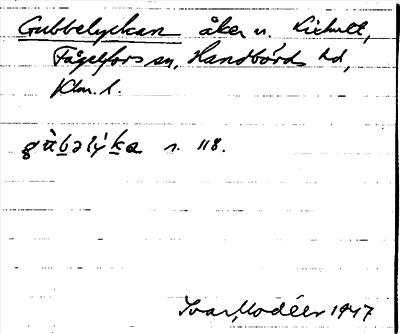 Gubbelyckan åker u. Lixhult,
Fågelfors sn, Handbörds hd,
Klm. l.
gùbəlýka s. 118.
Ivar Modéer 1947